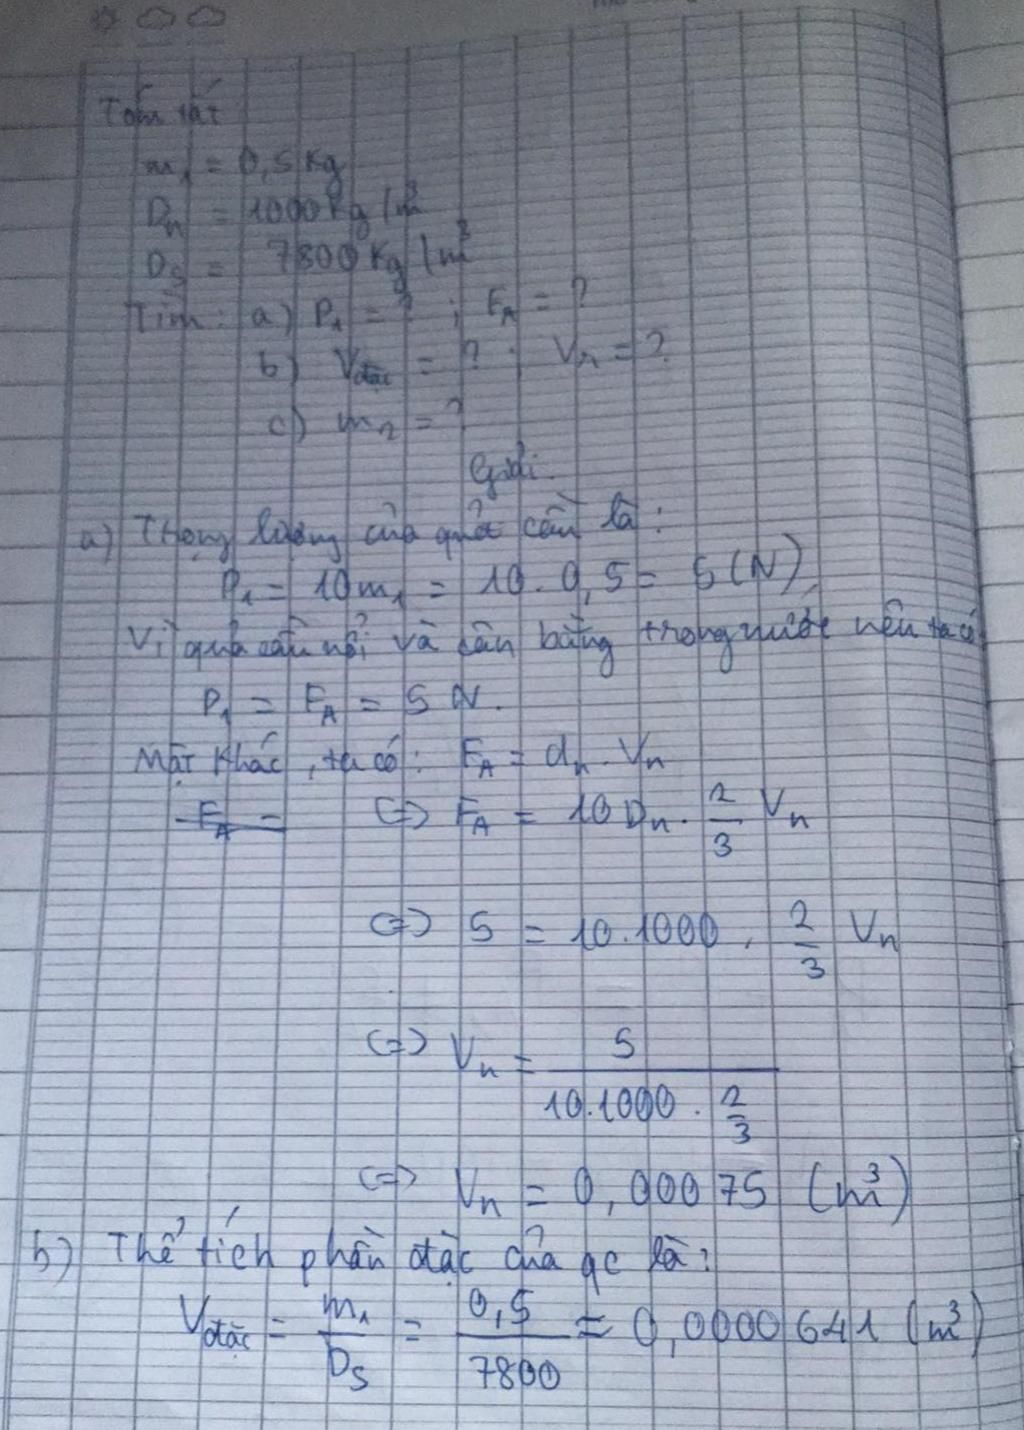 Tóm tắt
m₁ = 0,5 Kg
Dₙ = 1000 Kg/m³
Dₛ = 7800 Kg/m³
Tìm: a) P₁ = ? ; F_A = ?
b) V đặc = ? ; Vₙ = ?
c) m₂ = ?
Giải.
a) Trọng lượng của quả cầu là:
P₁ = 10m₁ = 10. 0,5 = 5 (N)
Vì quả cầu nổi và cân bằng trong nước nên ta có
P₁ = F_A = 5 N.
Mặt khác, ta có: F_A = dₙ . Vₙ
F_A = (=) F_A = 10 Dₙ . 2/3 Vₙ
(=) 5 = 10.1000 . 2/3 Vₙ
(=) Vₙ = 5 / (10.1000 . 2/3)
(=) Vₙ = 0,00075 (m³)
b) Thể tích phần đặc của qc là:
V đặc = m₁/Dₛ = 0,5/7800 = 0,0000641 (m³)